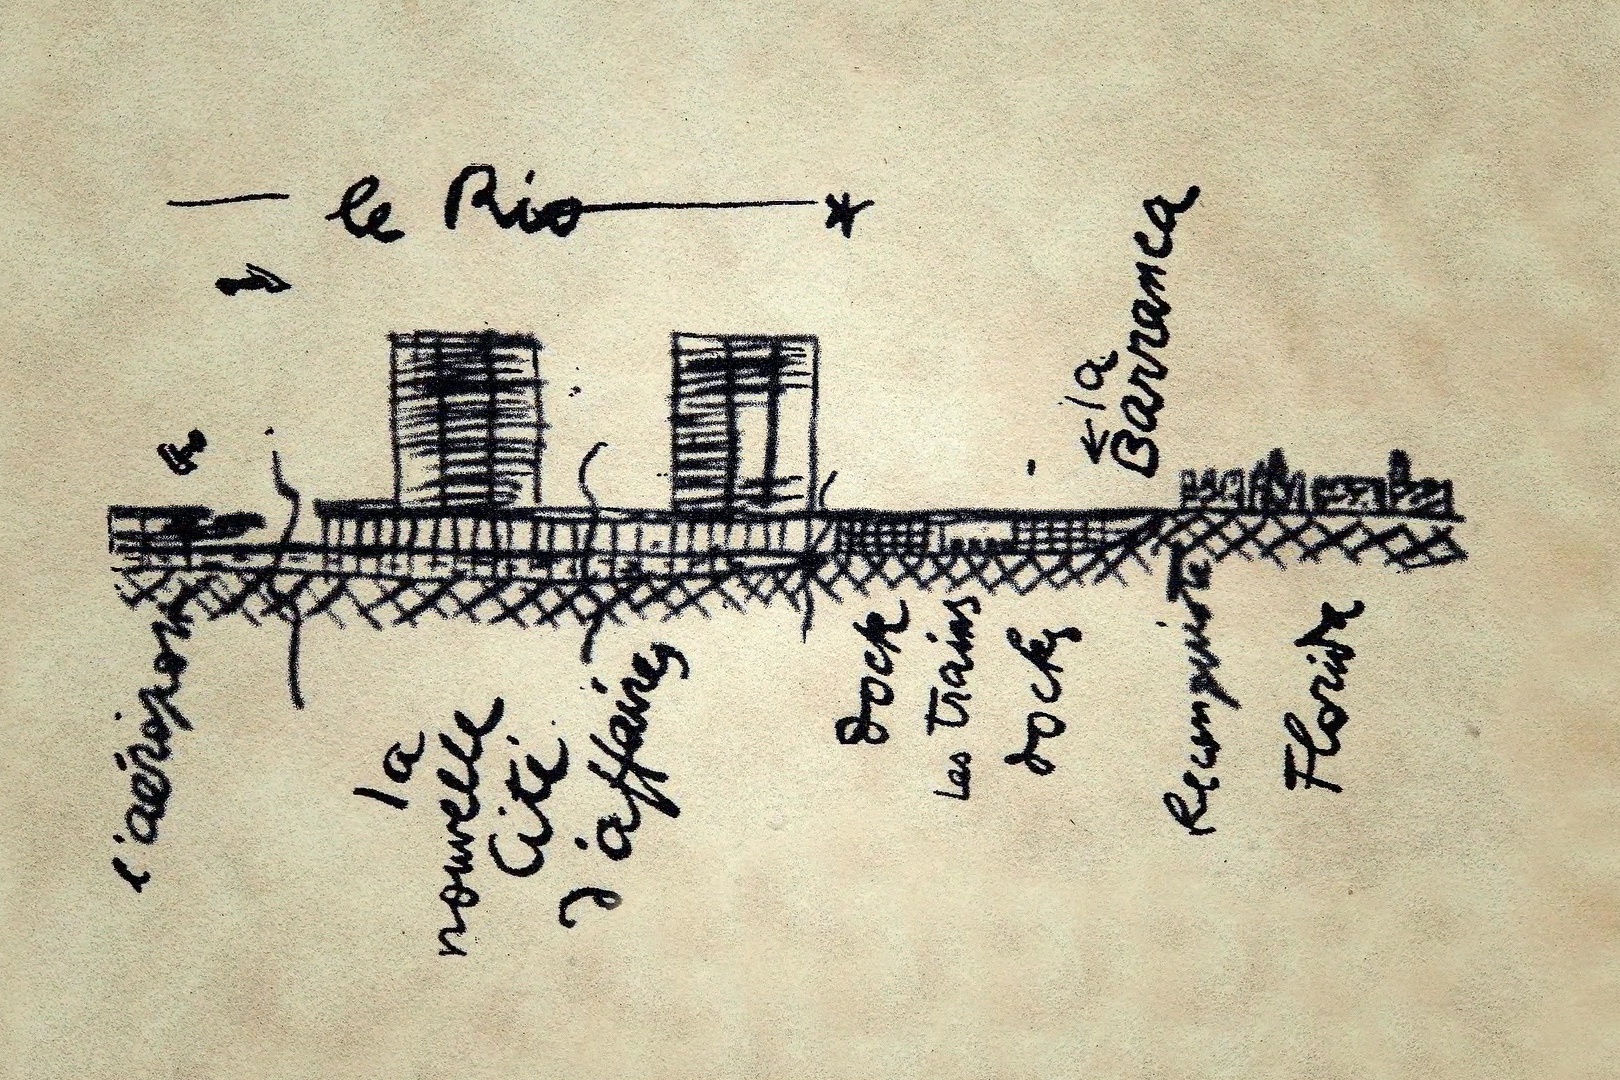 le Rio
la
Barranca
l'aéroport
la
nouvelle
Cité
d'affaires
dock
les trains
docks
Reconquista
Florida